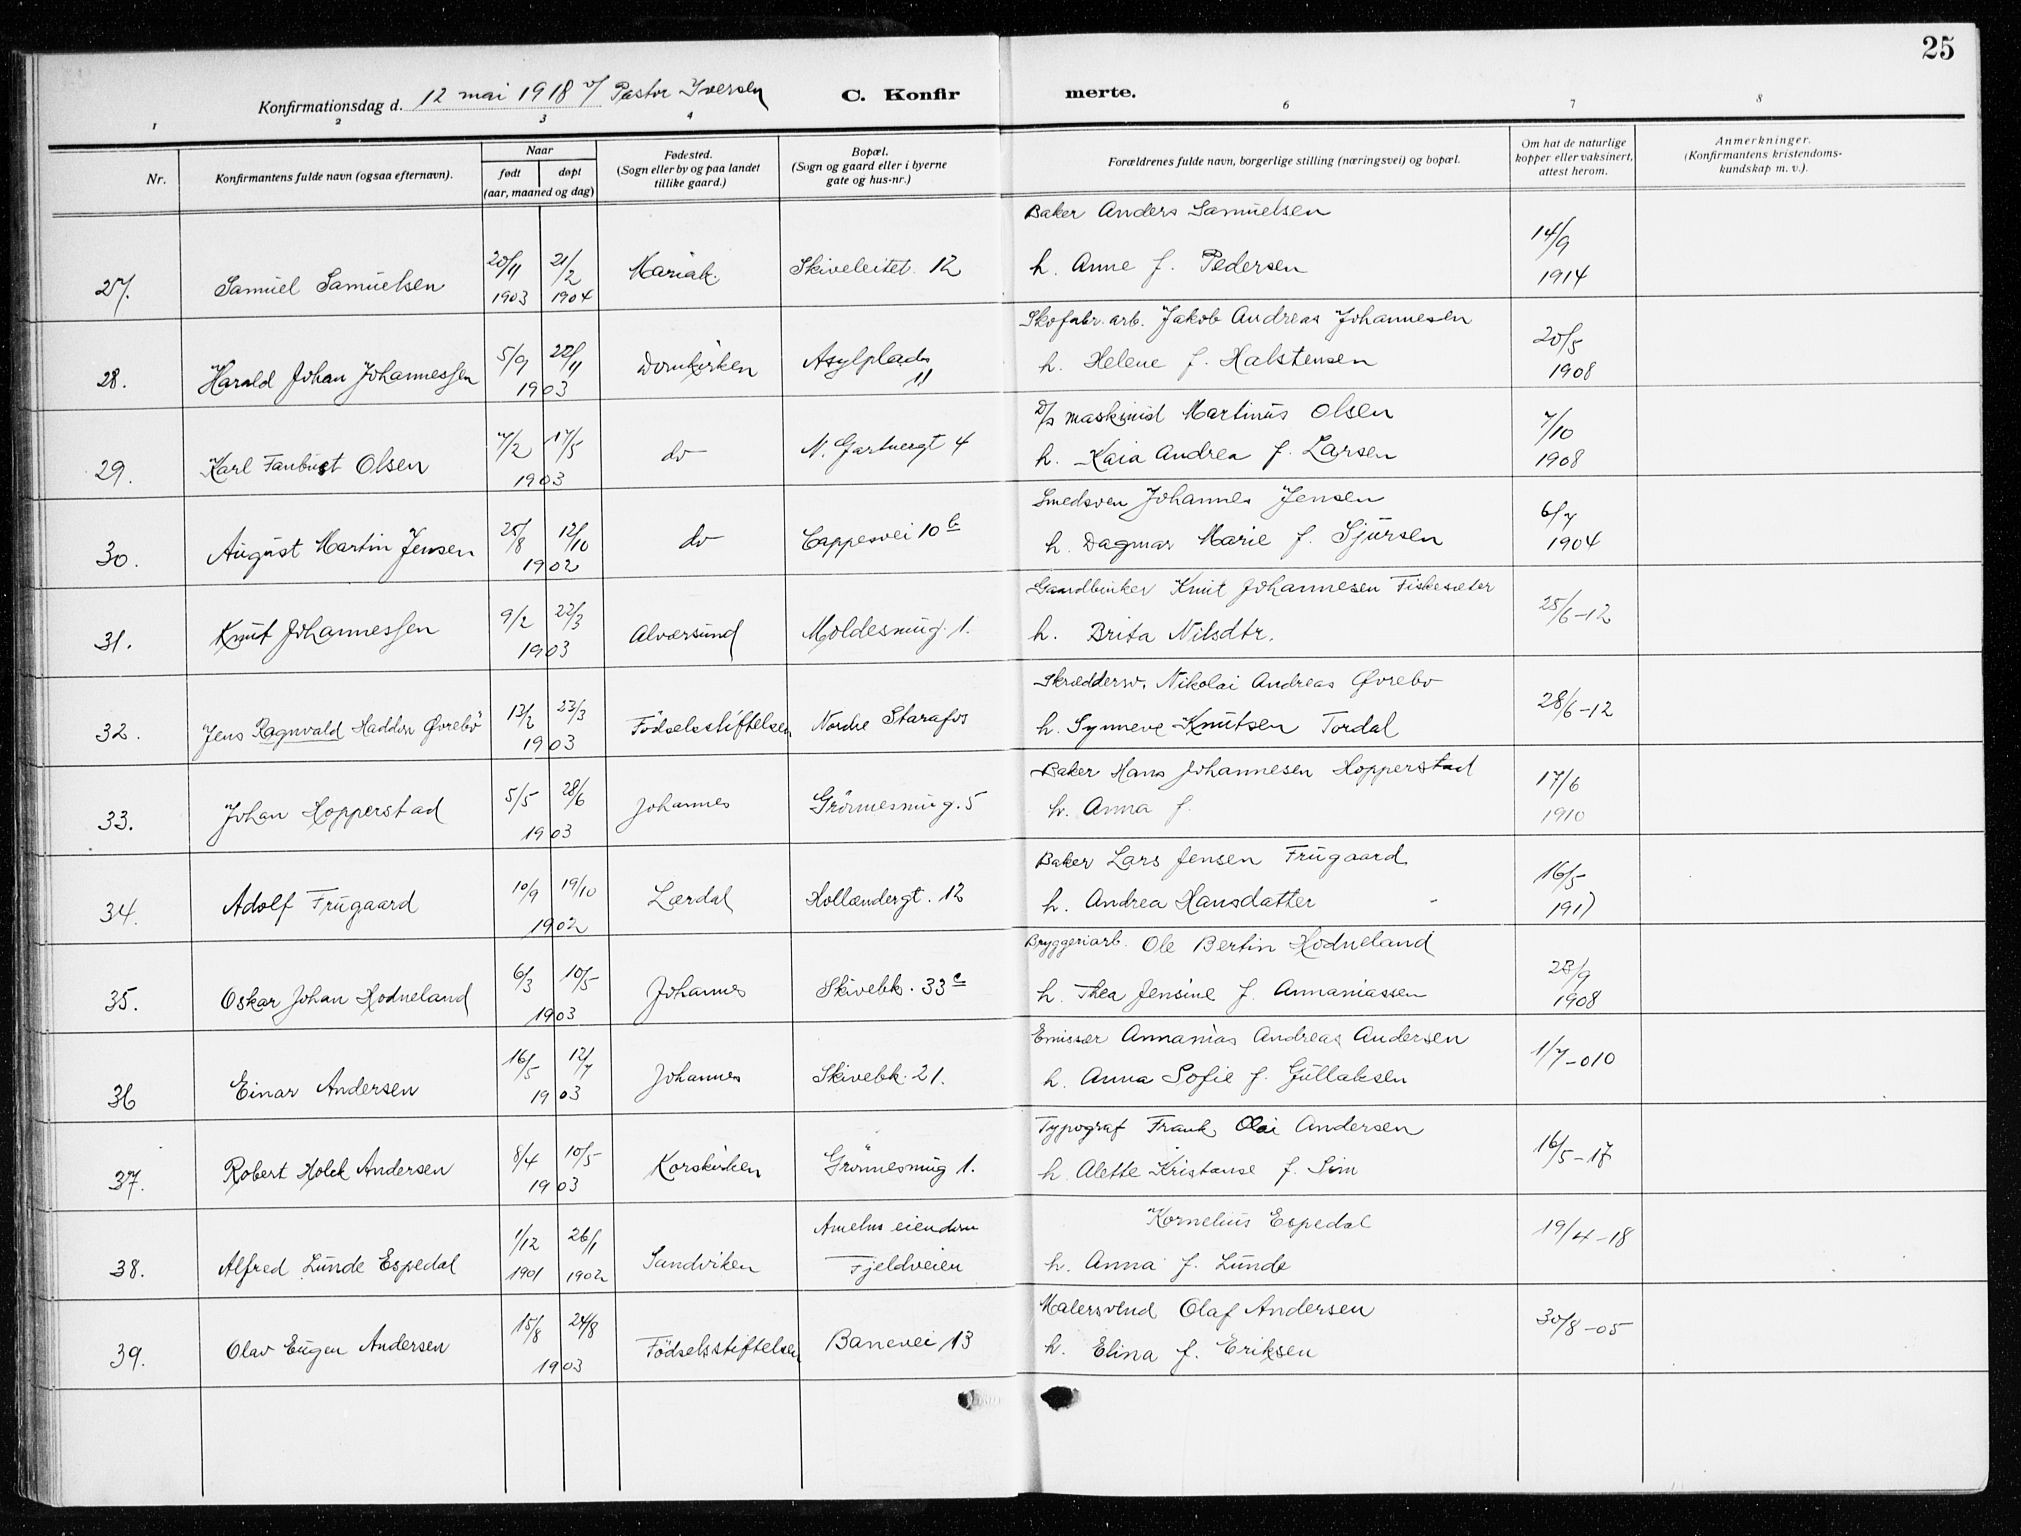 25
Konfirmationsdag d. 12 mai 1918 v/ Pastor Iversen
C. Konfir merte.
1 2 3 4 6 7 8
Nr.
Konfirmantens fulde navn (ogsaa efternavn).
Naar
født døpt
(aar, maaned og dag)
Fødested.
(Sogn eller by og paa landet
tillike gaard.)
Bopæl.
(Sogn og gaard eller i byerne
gate og hus-nr.)
Forældrenes fulde navn, borgerlige stilling (næringsvei) og bopæl.
Om hat de naturlige
kopper eller vaksinert,
attest herom.
Anmerkninger.
(Konfirmantens kristendoms-
kundskap m. v.).
Baker Anders Samuelsen
27. Samuel Samuelsen 20/11 1903 21/2 1904 Mariak. Skiveleitet 12 h. Anne f. Pedersen 14/9 1914
Skofabr. arb. Jakob Andreas Johannesen
28. Harald Johan Johannessen 5/9 22/11 1903 Domkirken Asylplads 11 h. Helene f. Halstensen 20/5 1908
D/s maskinist Martinus Olsen
29. Karl Fanbust Olsen 7/2 17/5 1903 do N. Gartnergt 4 h. Kaia Andrea f. Larsen 7/10 1908
Smedsven Johannes Jensen
30. August Martin Jensen 25/8 12/10 1902 do Cappesvei 10 b h. Dagmar Marie f. Sjursen 6/7 1904
Gaardbruker Knut Johannesen Fiskesæter
31. Knut Johannessen 9/2 22/3 1903 Alværsund Moldesmug. 1. h. Brita Nilsdtr. 25/6-12
Skræddersv. Nikolai Andreas Øvrebo
32. Jens Ragnvald Haddon Øvrebö 12/2 23/3 1903 Födselsstiftelsen Nordre Starafos h. Synneve Knutsen Tordal 28/6-12
Baker Hans Johannesen Hopperstad
33. Johan Hopperstad 5/5 28/6 1903 Johannes Grönnesmug. 5 h. Anna f. 17/6 1910
Baker Lars Jensen Frugaard
34. Adolf Frugaard 10/9 19/10 1902 Lærdal Hollendergt. 12 h. Andrea Hansdatter 16/5 1917
Bryggeriarb. Ole Bertin Hodneland
35. Oskar Johan Hodneland 6/3 10/5 1903 Johannes Skivebk. 33 c h. Thea Jensine f. Annaniassen 23/9 1908
Emissær Annanias Andreas Andersen
36 Einar Andersen 16/5 12/7 1903 Johannes Skivebk. 21. h. Anna Sofie f. Gullaksen 1/7-010
Typograf Frank Olai Andersen
37. Robert Holck Andersen 8/4 10/5 1903 Korskirken Grönnesmug 1. h. Alette Kristanse f. Sim 16/5-17
Kornelius Espedal
38. Alfred Lunde Espedal 1/12 1901 26/1 1902 Sandviken Amelns eiendom Fjeldveien h. Anna f. Lunde 19/4-18
Malersvend Olaf Andersen
39. Olav Eugen Andersen 15/8 24/8 1903 Födselsstiftelsen Banevei 13 h. Elina f. Eriksen 30/8-05